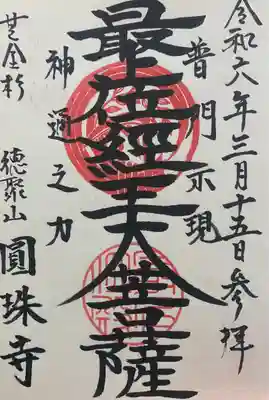 令和六年三月十五日参拝
普門示現
最位經王大菩薩
神通之力
徳聚山圓珠寺
芝金杉